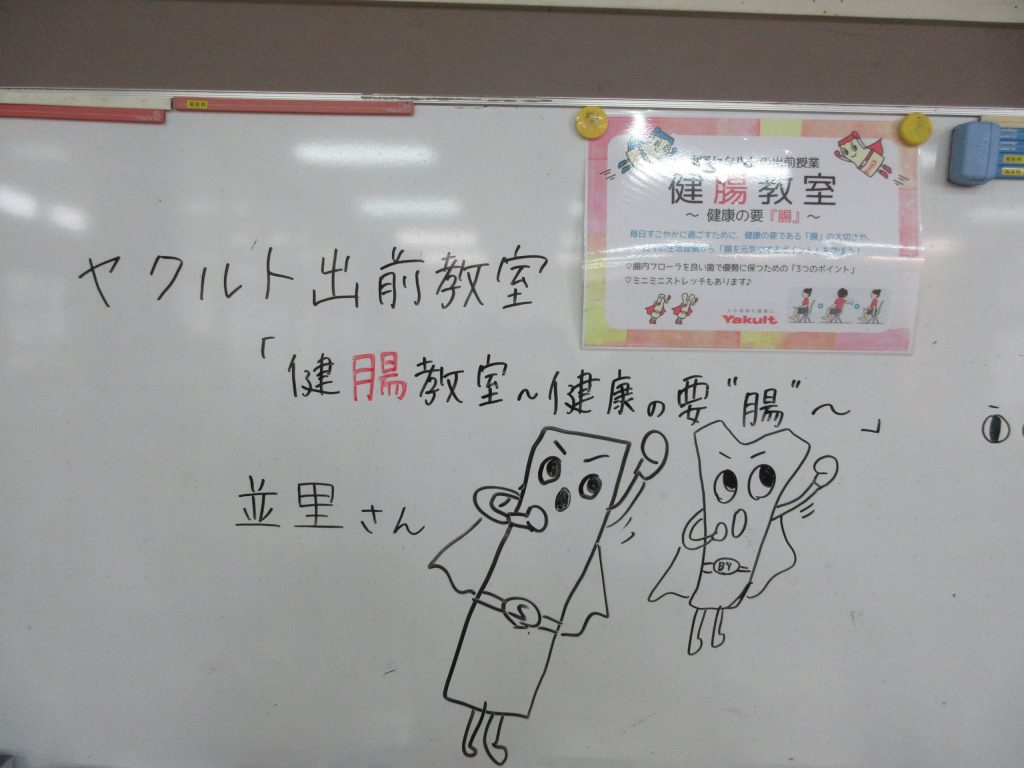 ヤクルト出前教室
「健腸教室~健康の要"腸"~」
並里さん
S
BY
出前授業
健腸教室
~ 健康の要『腸』~
毎日すこやかに過ごすために、健康の要である「腸」の大切さや、
♡腸内フローラを良い菌で優勢に保つための「3つのポイント」
♡ミニミニストレッチもあります♪
Yakult